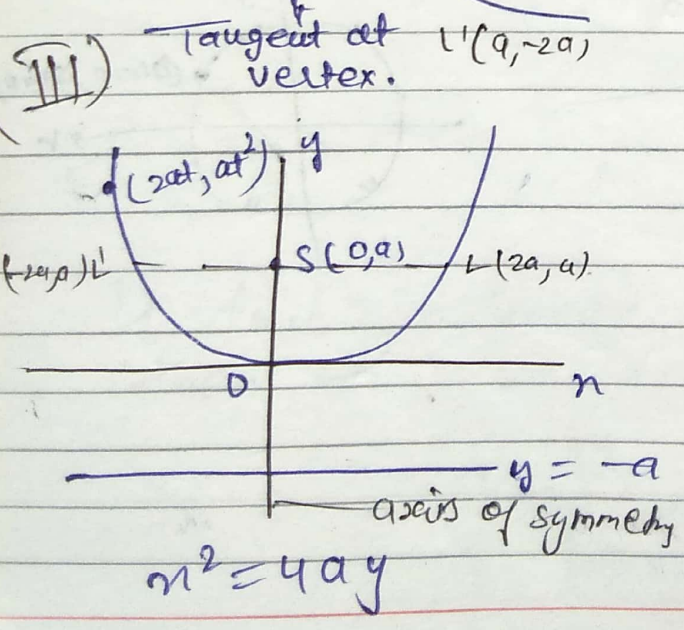 III) Tangent at L'(a,-2a)
vertex.
y
(2at, at²)
(-2a,a)L' S(0,a) L(2a, a)
O x
y = -a
axis of symmetry
x² = 4ay